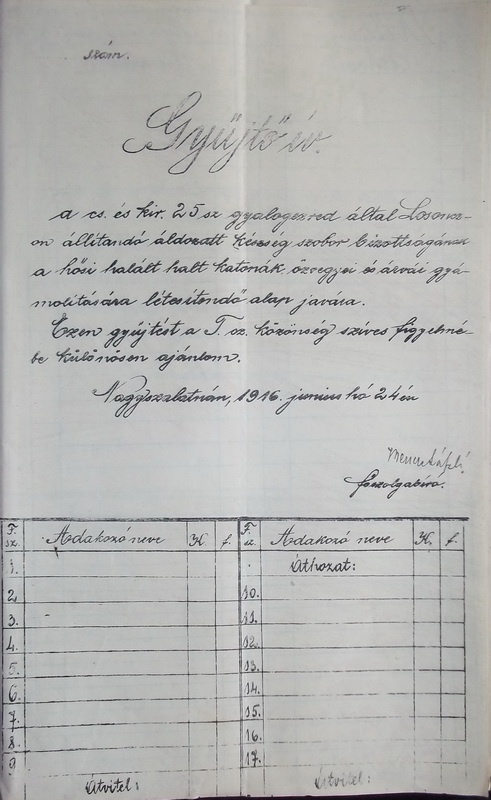 szám.
Gyűjtő ív.
a cs. és kir. 25 sz gyalogezred által Losoncz-
on állitandó áldozatt készség szobor bizottságának
a hősi halált halt katonák özvegyei és árvái gyá-
molitására létesitendő alap javára.
Ezen gyűjtést a T. sz. közönség szíves figyelmé-
be különösen ajánlom.
Nagyszalatnán, 1916. junius hó 24én
főszolgabiró.
F. sz. Adakozó neve K. f. F. sz. Adakozó neve K. f.
1. Áthozat:
2. 10.
3. 11.
4. 12.
5. 13.
6. 14.
7. 15.
8. 16.
9 17.
Átvitel: Átvitel: